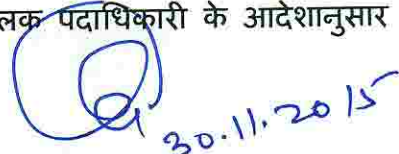 लक पदाधिकारी के आदेशानुसार
30.11.2015